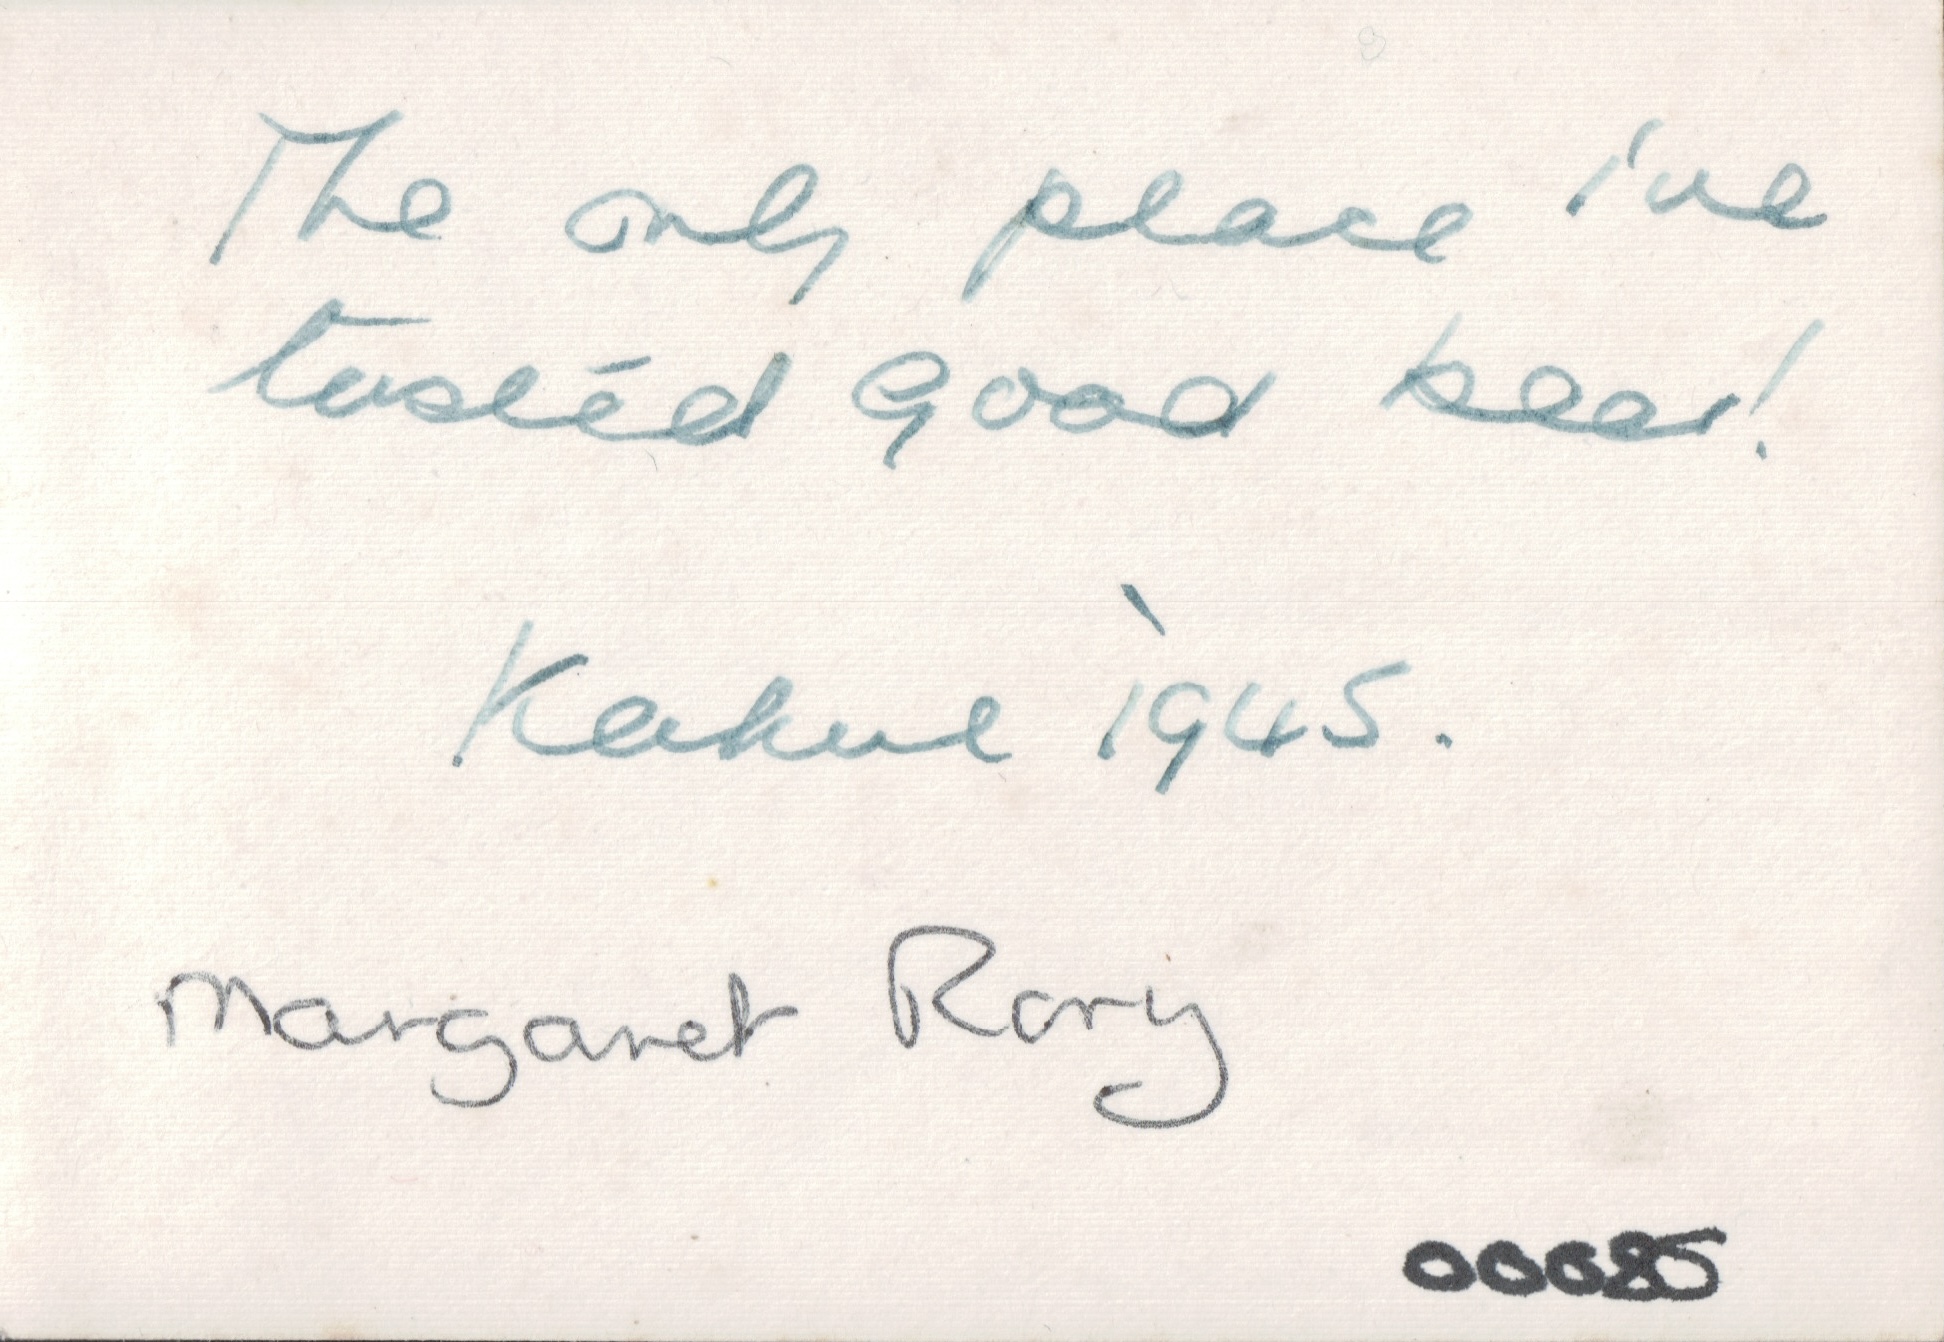 The only place i've
tasted good beer!
Kahwe 1945.
Margaret Rory
00085